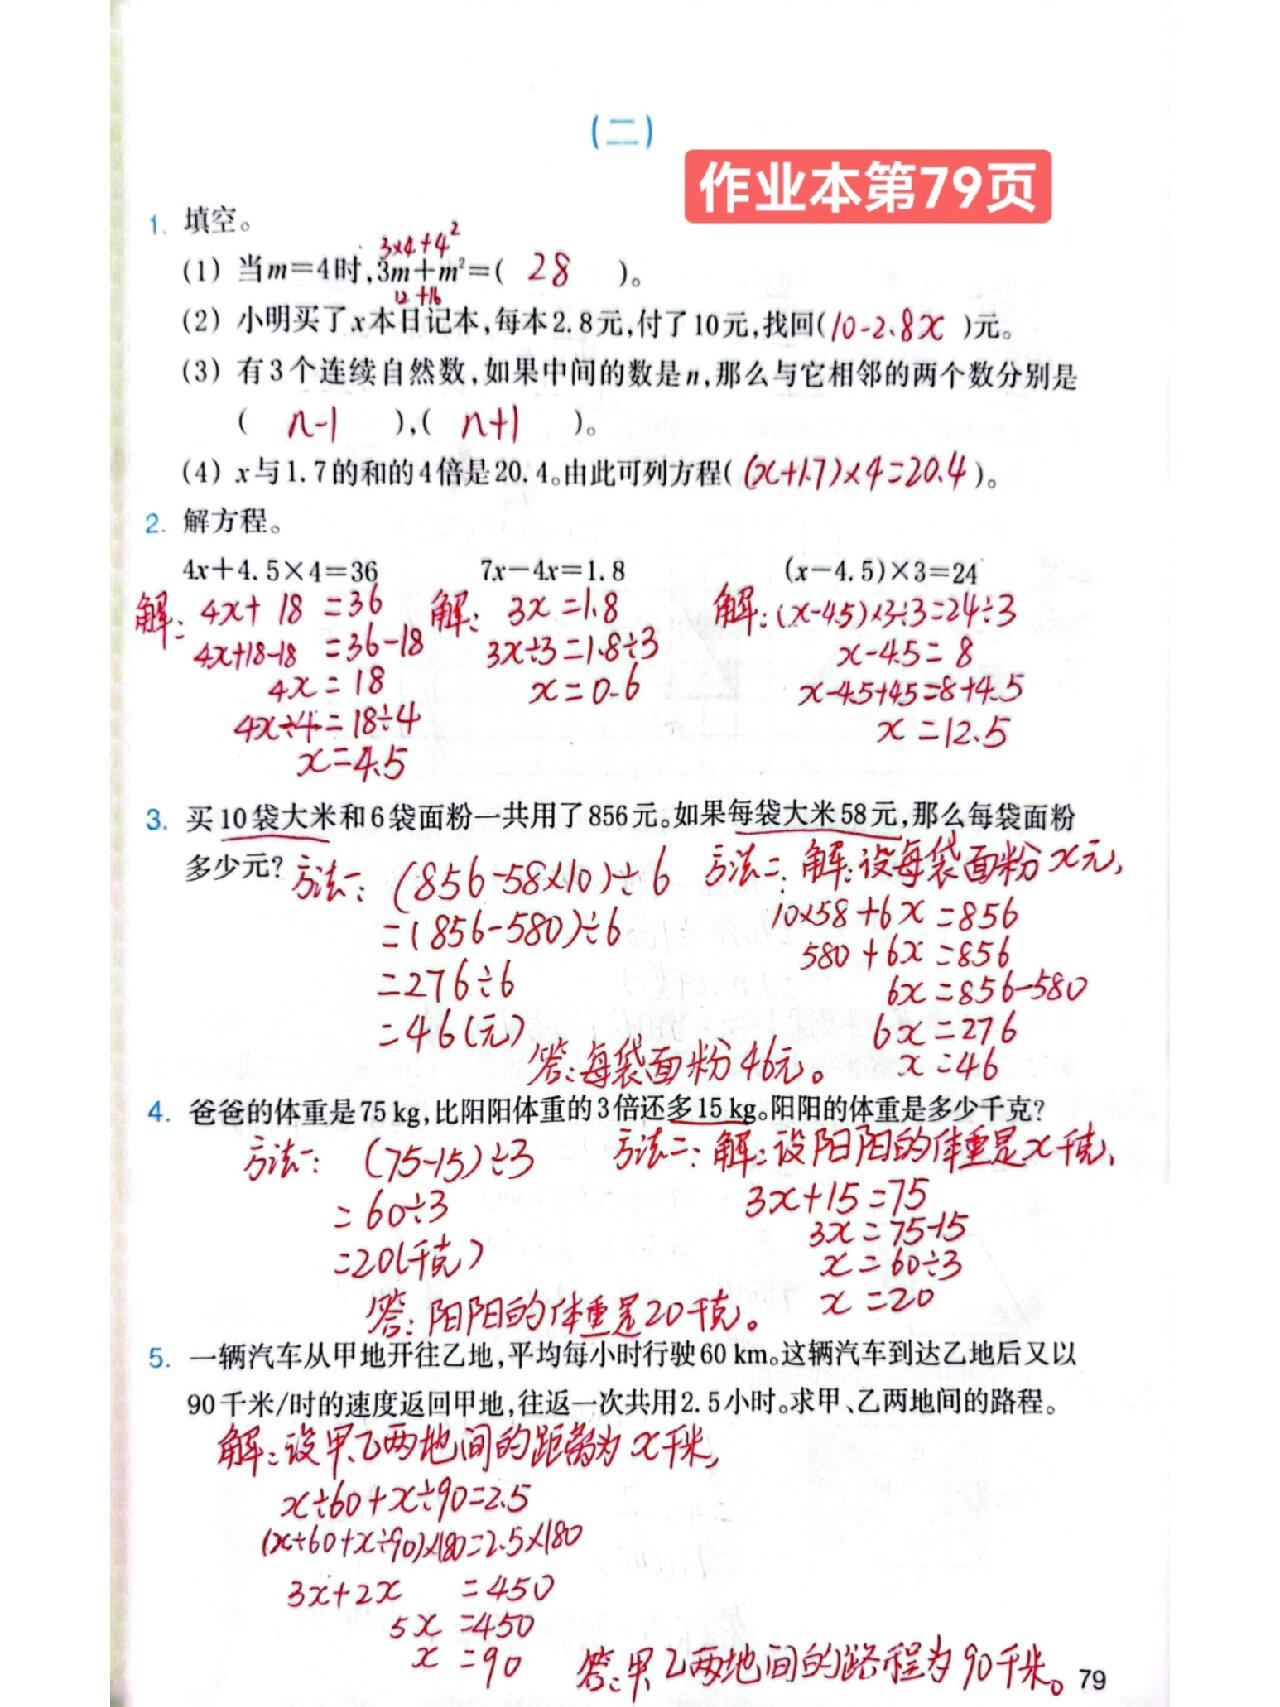 (二)
作业本第79页
1. 填空。
3×4+4²
(1) 当m=4时,3m+m²=( 28 )。
12+16
(2) 小明买了x本日记本,每本2.8元,付了10元,找回(10-2.8x)元。
(3) 有3个连续自然数,如果中间的数是n,那么与它相邻的两个数分别是
( n-1 ),( n+1 )。
(4) x与1.7的和的4倍是20.4。由此可列方程( (x+1.7)×4=20.4 )。
2. 解方程。
4x+4.5×4=36 7x-4x=1.8 (x-4.5)×3=24
解: 4x+18=36 解: 3x=1.8 解:(x-4.5)×3÷3=24÷3
4x+18-18=36-18 3x÷3=1.8÷3 x-4.5=8
4x=18 x=0.6 x-4.5+4.5=8+4.5
4x÷4=18÷4 x=12.5
x=4.5
3. 买10袋大米和6袋面粉一共用了856元。如果每袋大米58元,那么每袋面粉
多少元? 方法一: (856-58×10)÷6 方法二: 解:设每袋面粉x元,
=(856-580)÷6 10×58+6x=856
=276÷6 580+6x=856
=46(元) 6x=856-580
6x=276
答:每袋面粉46元。 x=46
4. 爸爸的体重是75kg,比阳阳体重的3倍还多15kg。阳阳的体重是多少千克?
方法一: (75-15)÷3 方法二: 解:设阳阳的体重是x千克,
=60÷3 3x+15=75
=20(千克) 3x=75-15
x=60÷3
答:阳阳的体重是20千克。 x=20
5. 一辆汽车从甲地开往乙地,平均每小时行驶60 km。这辆汽车到达乙地后又以
90千米/时的速度返回甲地,往返一次共用2.5小时。求甲、乙两地间的路程。
解:设甲、乙两地间的距离为x千米,
x÷60+x÷90=2.5
(x÷60+x÷90)×180=2.5×180
3x+2x=450
5x=450
x=90
答:甲、乙两地间的路程为90千米。
79